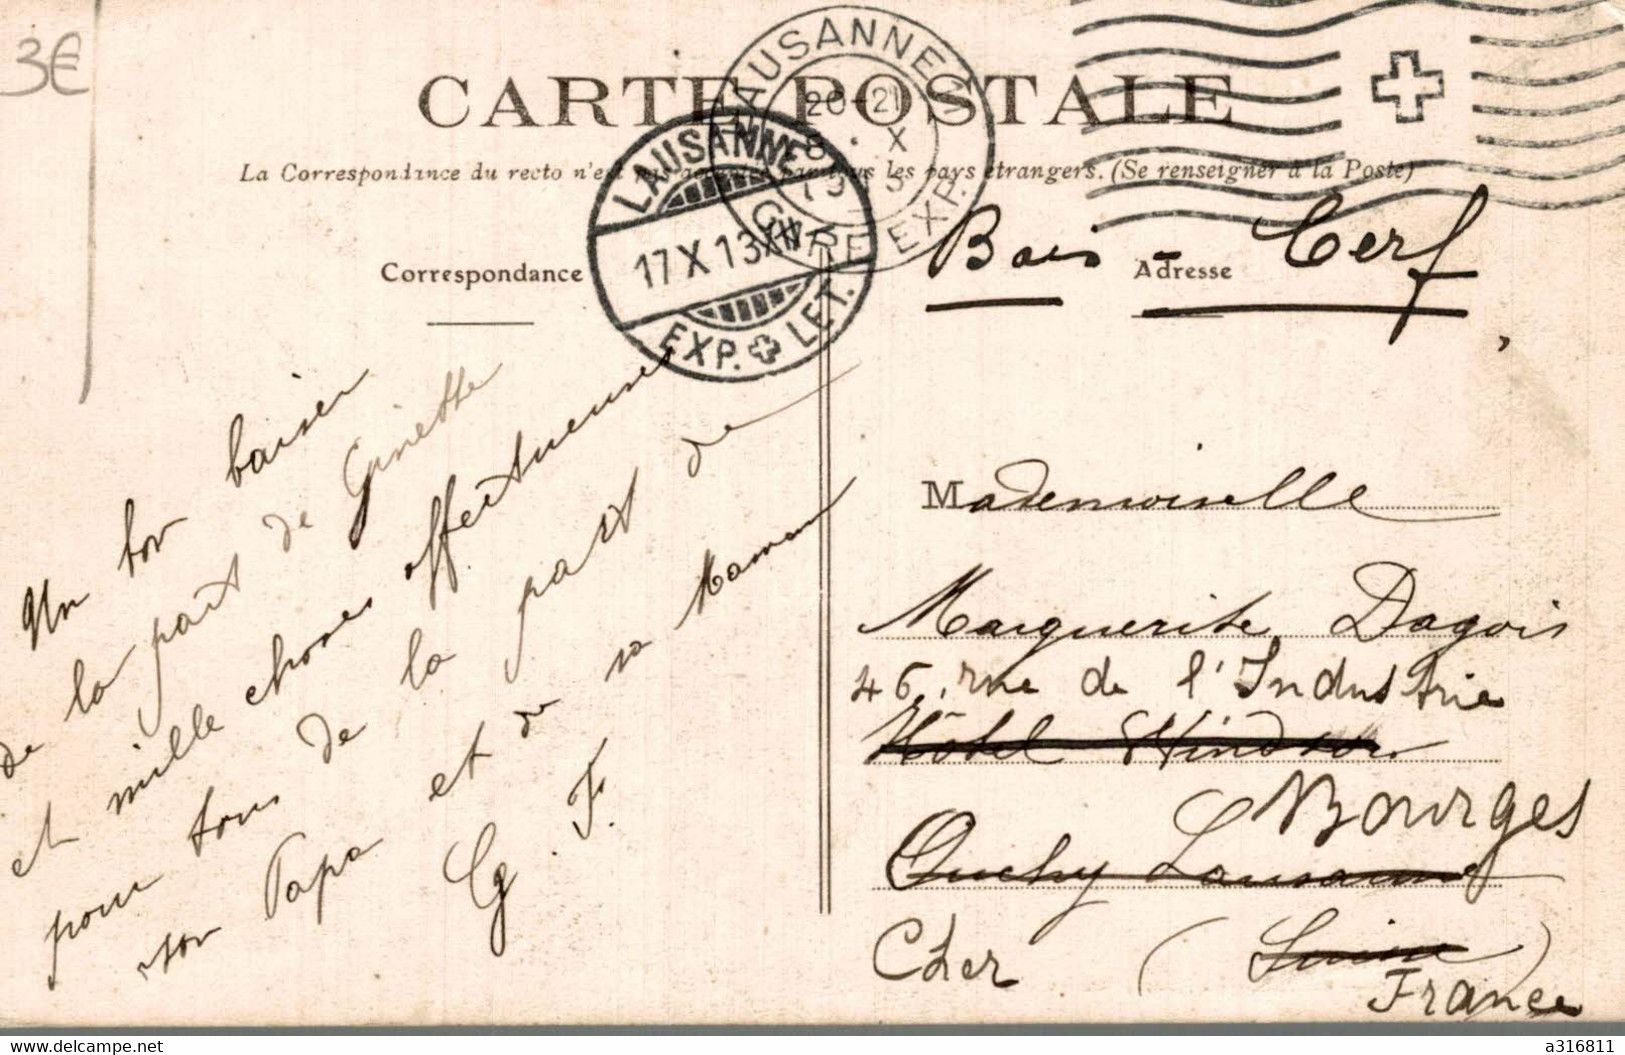 3€
CARTE POSTALE
La Correspondance du recto n'est pas acceptée par tous les pays étrangers. (Se renseigner à la Poste)
LAUSANNE
20-21
8 . X
EXP.
LAUSANNE
17 X 13
EXP. LET.
Correspondance
Adresse
Bois - Cerf
Un bon baiser
de la part de Ginette
et mille choses affectueuses
pour tous de la part de
son Papa et de sa Maman
G. F.
Mademoiselle
Marguerite Dagois
46, rue de l'Industrie
Hôtel Windsor
Bourges
Ouchy Lausanne
Cher (Suisse)
France
delcampe.net
a316811